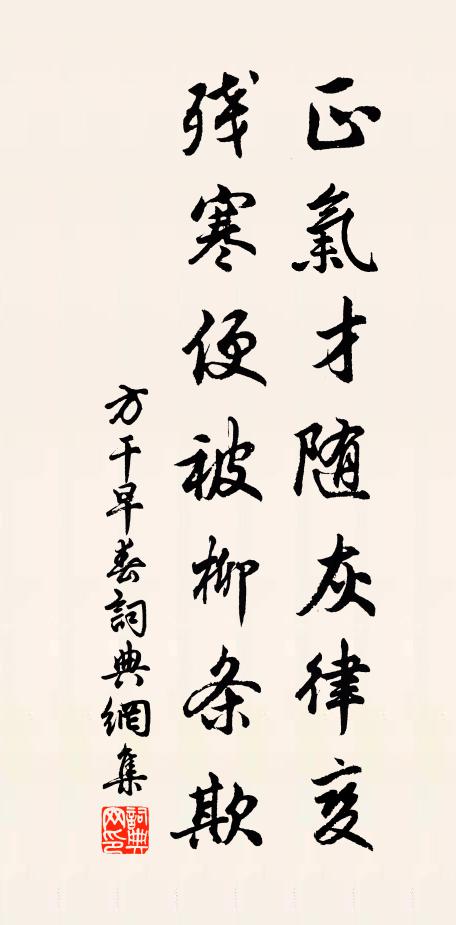 正氣才随灰律变
残寒便被柳条欺
方干早春詞典網集
詞典网印